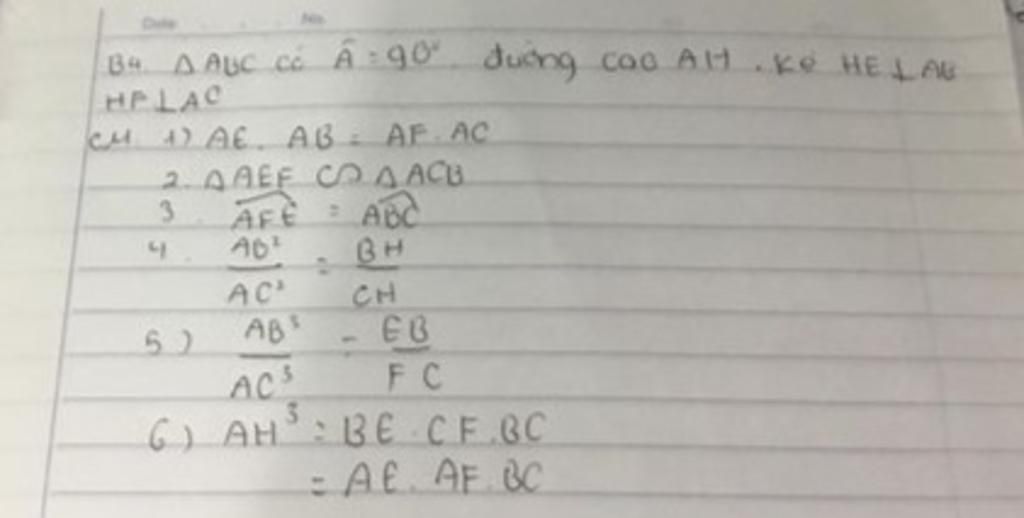 Date No.
B4. △ ABC có Â = 90° đường cao AH. Kẻ HE ⊥ AB
HF ⊥ AC
CM 1) AE. AB = AF. AC
2. △AEF ∽ △ACB
3. \widehat{AFE} = \widehat{ABC}
4. \frac{AB²}{AC²} = \frac{BH}{CH}
5) \frac{AB³}{AC³} = \frac{EB}{FC}
6) AH³ = BE. CF. BC
= AE. AF. BC